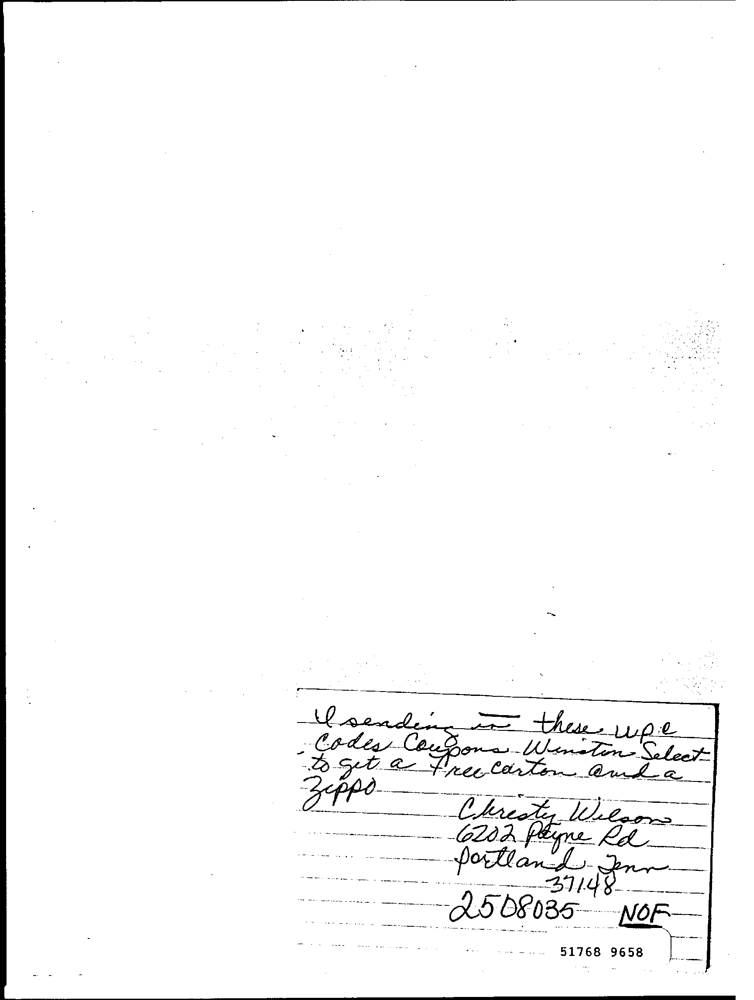 I sending in these upc
Codes Coupons Winston Select
to get a free carton and a
Zippo
Christy Wilson
6202 Payne Rd
Portland Tenn
37148
2508035 NOF
51768 9658